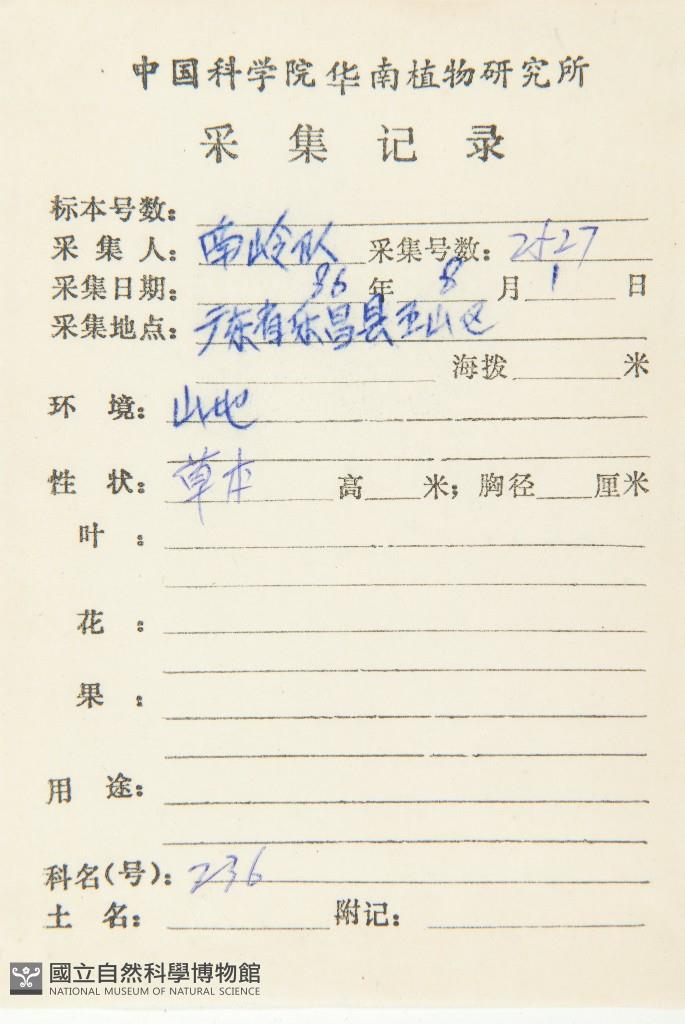 中国科学院华南植物研究所
采集记录
标本号数：
采集人：南岭队 采集号数：2527
采集日期：86年8月1日
采集地点：广东省乐昌县五山区
海拨 米
环境：山地
性状：草本 高 米；胸径 厘米
叶：
花：
果：
用途：
科名(号)：236
土名： 附记：
國立自然科學博物館
NATIONAL MUSEUM OF NATURAL SCIENCE